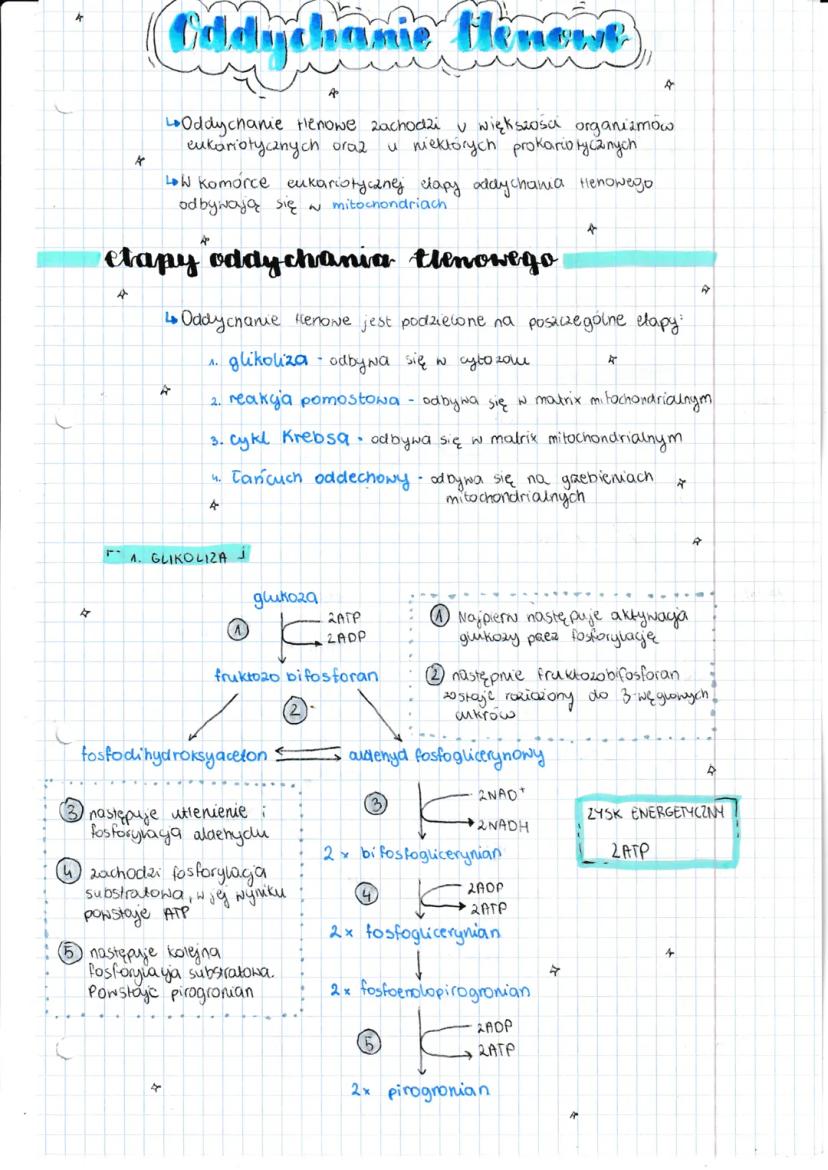 Oddychanie tlenowe
↳Oddychanie tlenowe zachodzi u większości organizmów
eukariotycznych oraz u niektórych prokariotycznych
↳W komórce eukariotycznej etapy oddychania tlenowego
odbywają się w mitochondriach
etapy oddychania tlenowego
↳Oddychanie tlenowe jest podzielone na poszczególne etapy:
1. glikoliza - odbywa się w cytozolu
2. reakcja pomostowa - odbywa się w matrix mitochondrialnym
3. cykl Krebsa - odbywa się w matrix mitochondrialnym
4. Łańcuch oddechowy - odbywa się na grzebieniach
mitochondrialnych
1. GLIKOLIZA
glukoza
1
2ATP
2ADP
fruktozo bifosforan
2
fosfodihydroksyaceton
aldehyd fosfoglicerynowy
① Najpierw następuje aktywacja
glukozy przez fosforylację
② następnie fruktozobifosforan
zostaje rozłożony do 3-węglowych
cukrów
③ następuje utlenienie i
fosforylacja aldehydu
④ zachodzi fosforylacja
substratowa, w jej wyniku
powstaje ATP
⑤ następuje kolejna
fosforylacja substratowa.
Powstaje pirogronian
3
2NAD⁺
2NADH
2 x bifosfoglicerynian
4
2ADP
2ATP
2x fosfoglicerynian
2x fosfoenolopirogronian
5
2ADP
2ATP
2x pirogronian
ZYSK ENERGETYCZNY
2ATP